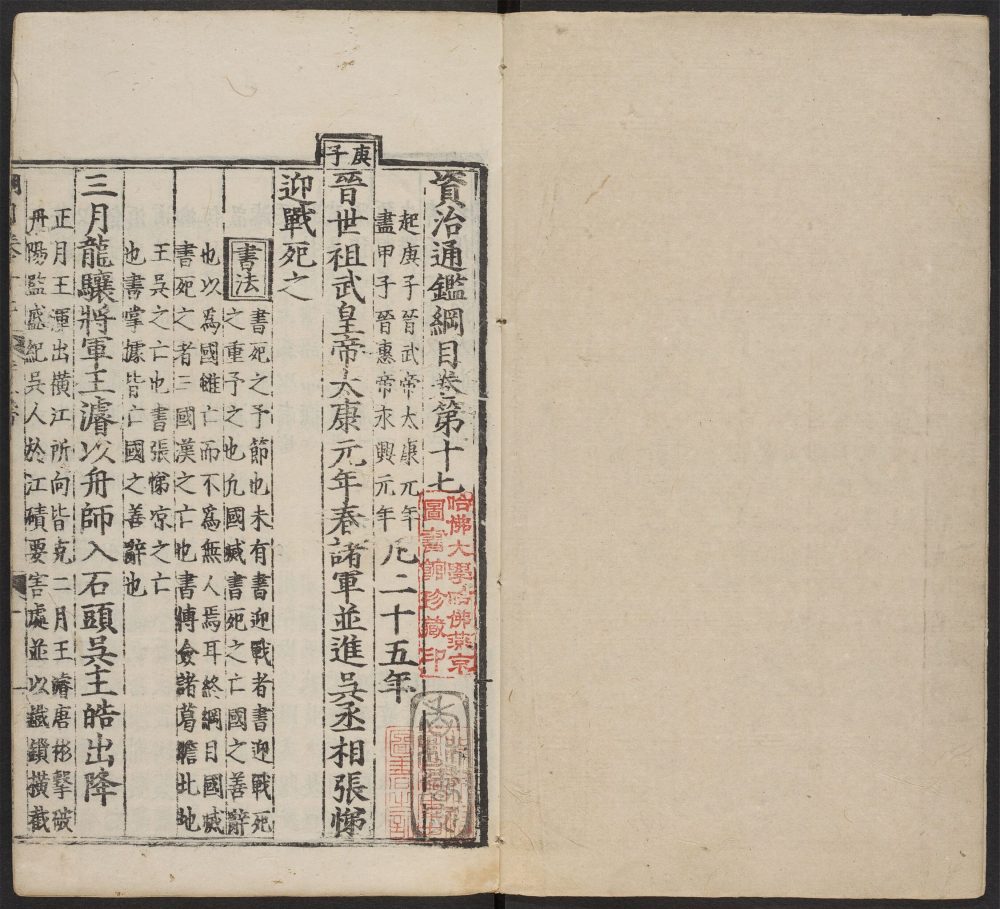 資治通鑑綱目卷第十七
起庚子晉武帝太康元年
盡甲子晉惠帝永興元年
凡二十五年
庚子
晉世祖武皇帝太康元年春諸軍並進吳丞相張悌
迎戰死之
書法
書死之予節也未有書迎戰者書迎戰死
之重予之也凡國滅書死之亡國之善辭
也以為國雖亡而不為無人焉耳終綱目國滅
書死之者三國漢之亡也書傅僉諸葛瞻北地
王吳之亡也書張悌凉之亡
也書掌據皆亡國之善辭也
三月龍驤將軍王濬以舟師入石頭吳主皓出降
正月王渾出橫江所向皆克二月王濬唐彬擊破
丹陽監盛紀吳人於江磧要害處並以鐵鎖橫截
哈佛大學哈佛燕京
圖書館珍藏印